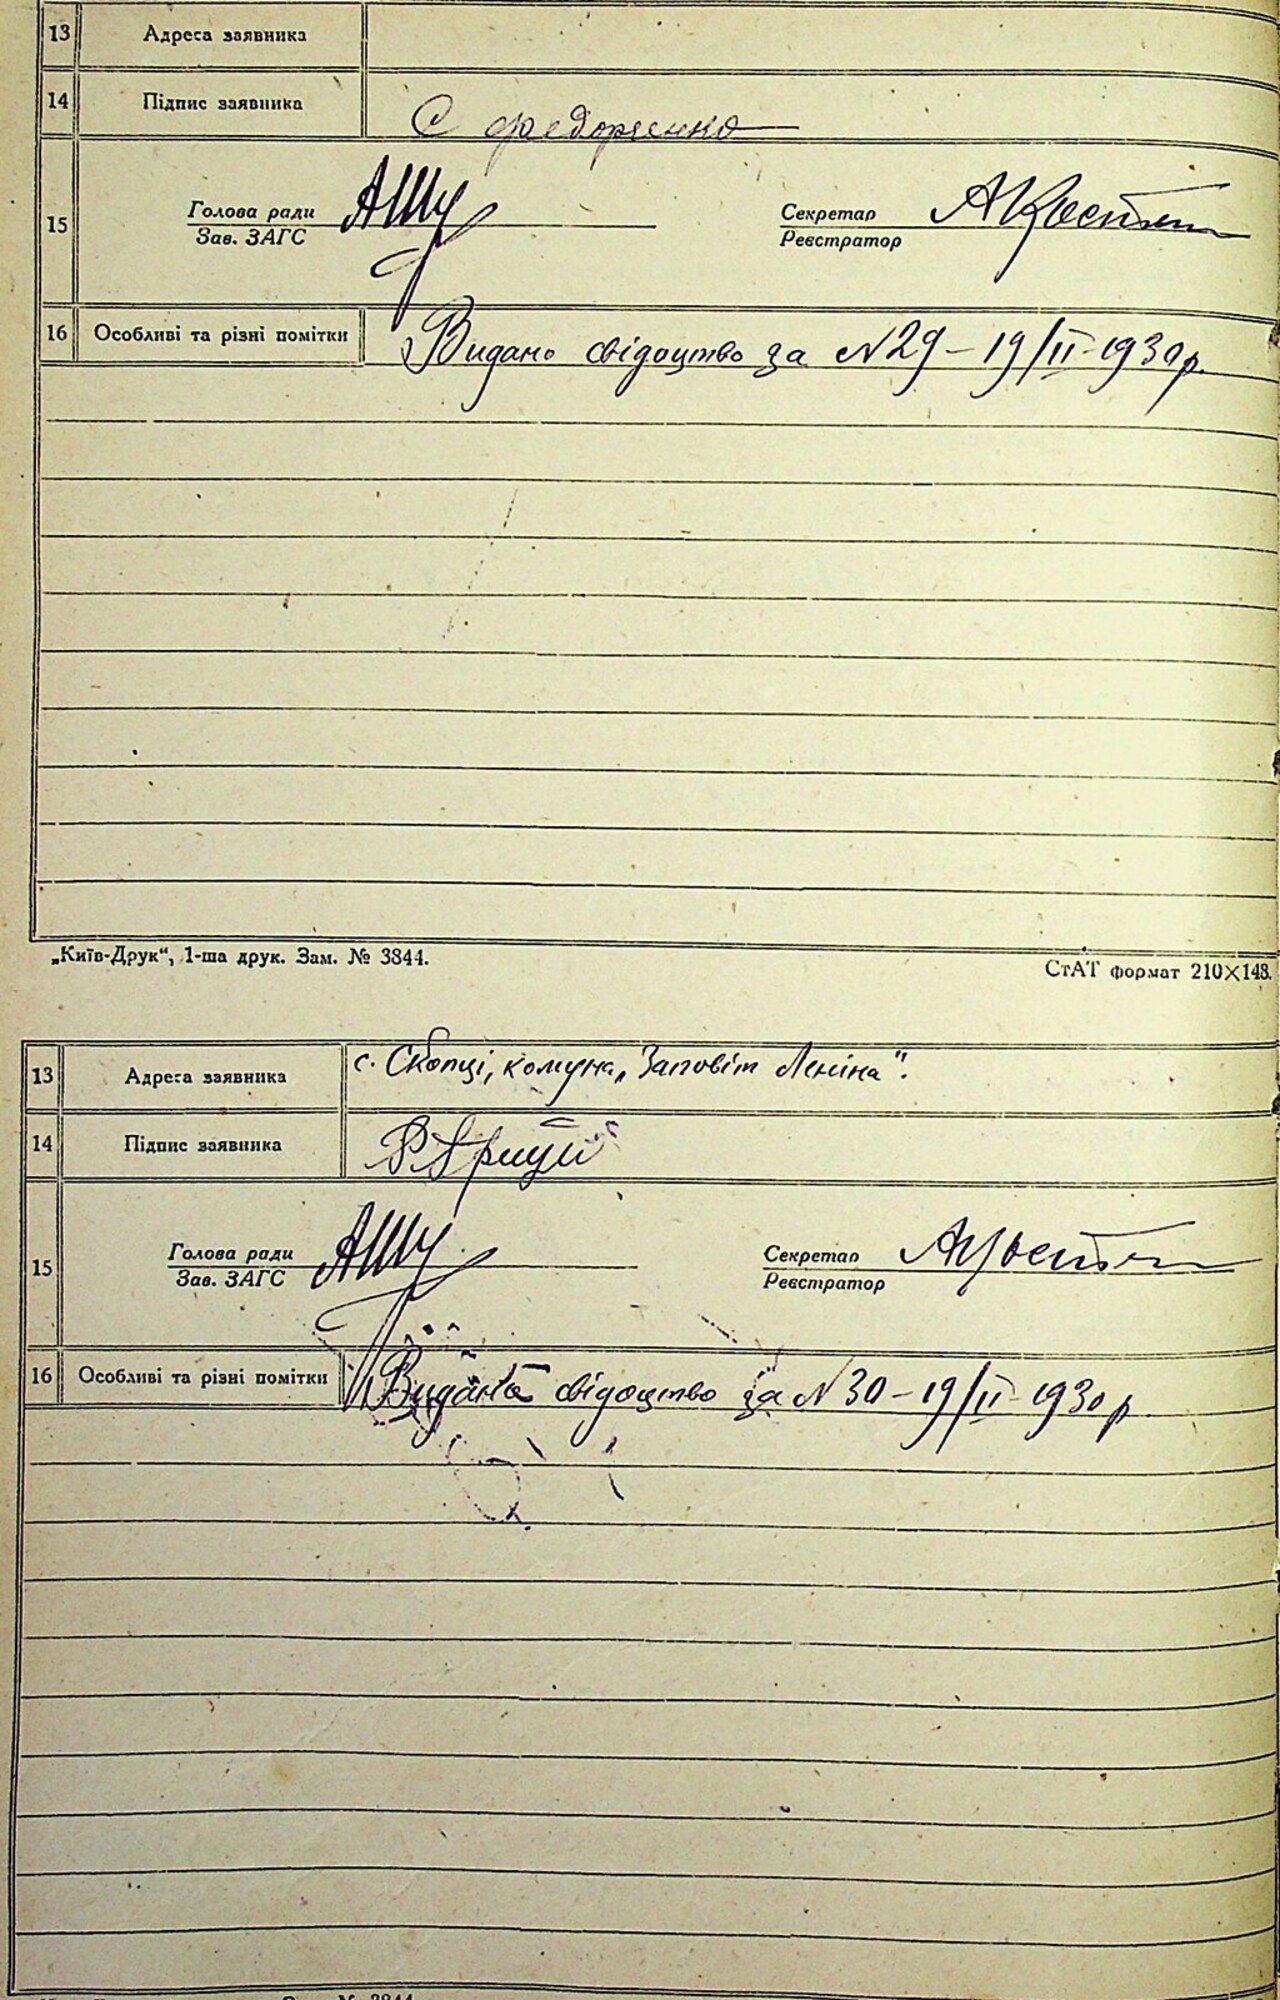 13 Адреса заявника
14 Підпис заявника С Федорченко
15 Голова ради Секретар
Зав. ЗАГС Реєстратор
16 Особливі та різні помітки Видано свідоцтво за N29 – 19/II – 1930 р.
„Київ-Друк“, 1-ша друк. Зам. № 3844. СтАТ формат 210×148.
13 Адреса заявника с. Скопці, комуна „Заповіт Леніна“.
14 Підпис заявника
15 Голова ради Секретар
Зав. ЗАГС Реєстратор
16 Особливі та різні помітки Видано свідоцтво за N30 – 19/II – 1930 р